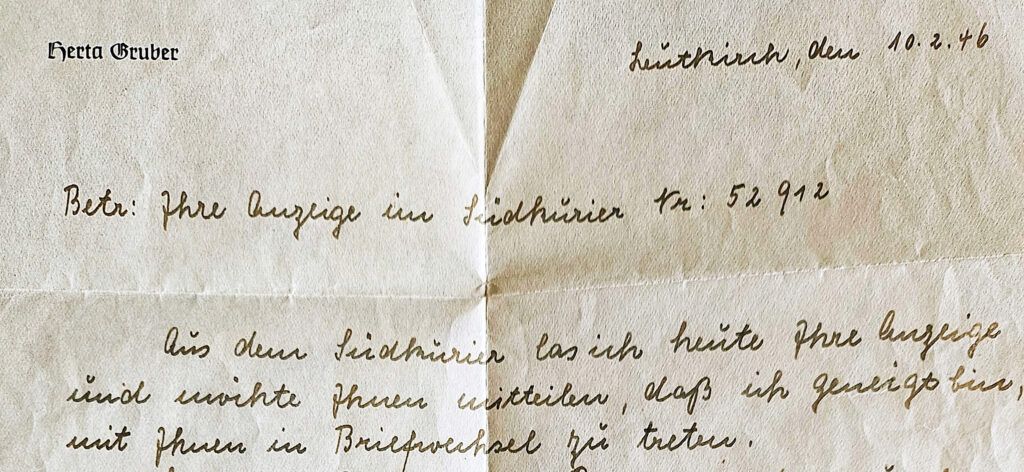 Herta Gruber
Leutkirch, den 10.2.46
Betr: Ihre Anzeige im Südkurier Nr: 52 912
Aus dem Südkurier las ich heute Ihre Anzeige
und möchte Ihnen mitteilen, daß ich geneigt bin,
mit Ihnen in Briefwechsel zu treten.